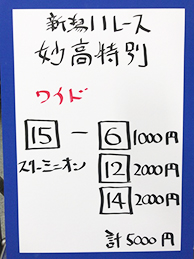 新潟11レース
妙高特別
ワイド
15 - 6 1000円
スリーミニオン 12 2000円
14 2000円
計5000円